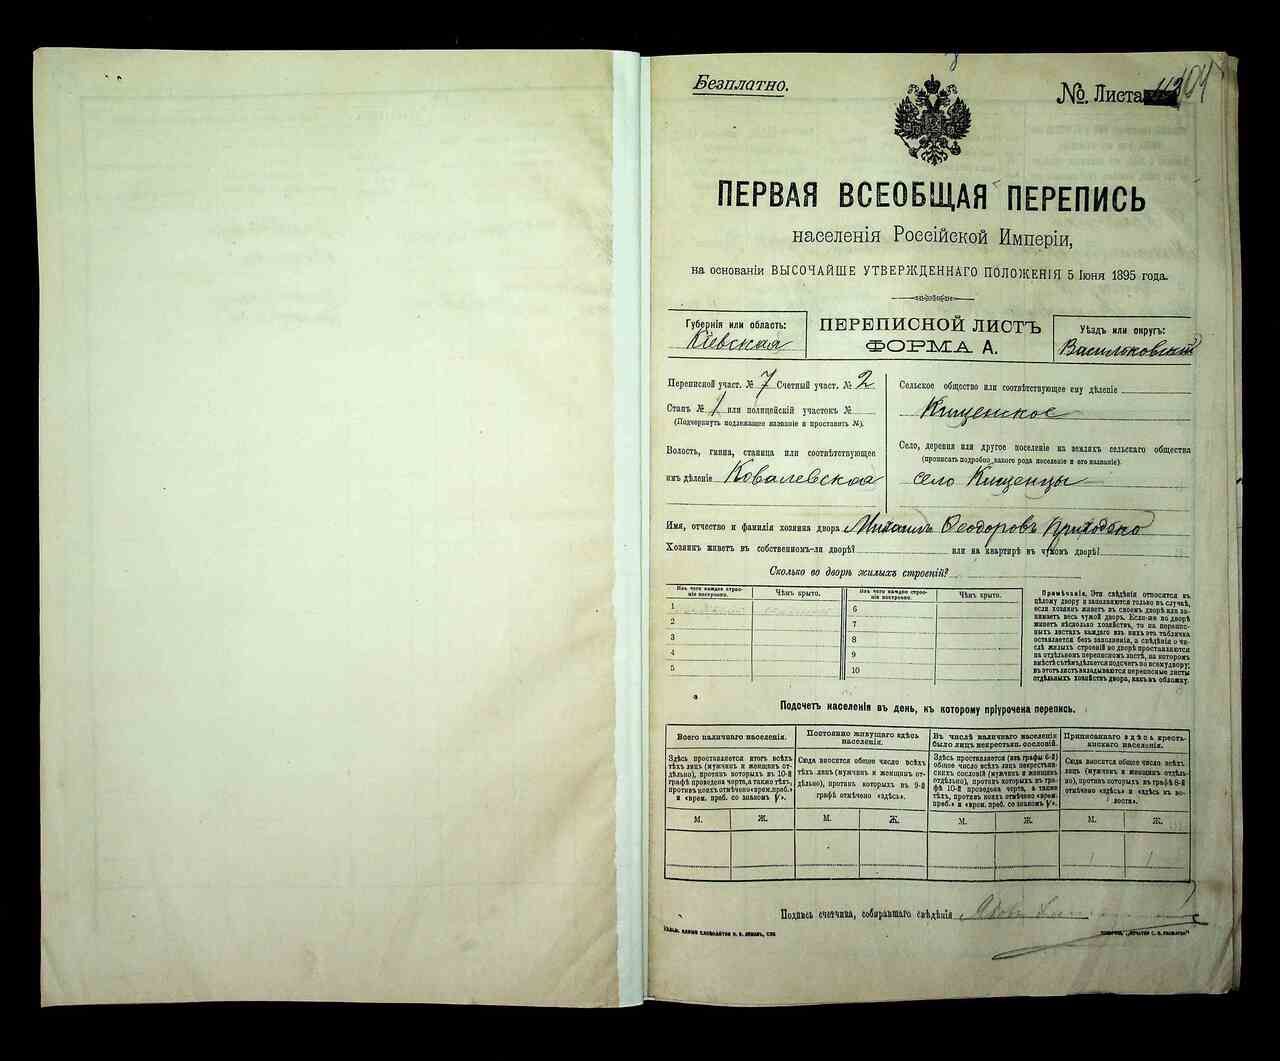 Безплатно.
№ Листа
104
ПЕРВАЯ ВСЕОБЩАЯ ПЕРЕПИСЬ
населенія Россійской Имперіи,
на основаніи ВЫСОЧАЙШЕ УТВЕРЖДЕННАГО ПОЛОЖЕНІЯ 5 Іюня 1895 года.
Губернія или область:
Кіевская
ПЕРЕПИСНОЙ ЛИСТЪ
ФОРМА А.
Уѣздъ или округъ:
Васильковскій
Переписной участ. № 7 Счетный участ. № 2
Станъ № 1 или полицейскій участокъ №
(Подчеркнуть подлежащее названіе и проставить №).
Волость, гмина, станица или соотвѣтствующее
имъ дѣленіе Ковалевская
Сельское общество или соотвѣтствующее ему дѣленіе
Кищенское
Село, деревня или другое поселеніе на земляхъ сельскаго общества
(прописать подробно, какого рода поселеніе и его названіе).
село Кищенцы
Имя, отчество и фамилія хозяина двора Михаилъ Феодоровъ Приходько
Хозяинъ живетъ въ собственномъ-ли дворѣ? или на квартирѣ въ чужомъ дворѣ?
Сколько во дворѣ жилыхъ строеній?
Изъ чего каждое строеніе построено.
Чѣмъ крыто.
Изъ чего каждое строеніе построено.
Чѣмъ крыто.
1
2
3
4
5
6
7
8
9
10
Примѣчанія. Эти свѣдѣнія относятся къ
цѣлому двору и заполняются только въ случаѣ,
если хозяинъ живетъ въ своемъ дворѣ или занимаетъ
весь чужой дворъ. Если-же во дворѣ
живетъ нѣсколько хозяйствъ, то на переписныхъ
листахъ каждаго изъ нихъ эта табличка
оставляется безъ заполненія, а свѣдѣнія о числѣ
жилыхъ строеній во дворѣ проставляются
на отдѣльномъ переписномъ листѣ, на которомъ
вмѣстѣ съ тѣмъ дѣлается подсчетъ по всему двору;
въ этотъ листъ вкладываются переписные листы
отдѣльныхъ хозяйствъ двора, какъ въ обложку.
Подсчетъ населенія въ день, къ которому пріурочена перепись.
Всего наличнаго населенія.
Здѣсь проставляется итогъ всѣхъ
тѣхъ лицъ (мужчинъ и женщинъ отдѣльно),
противъ которыхъ въ 10-й
графѣ проведена черта, а также тѣхъ,
противъ коихъ отмѣчено «врем. преб.»
и «врем. преб. со знакомъ V».
Постоянно живущаго здѣсь
населенія.
Сюда вносится общее число всѣхъ
тѣхъ лицъ (мужчинъ и женщинъ отдѣльно),
противъ которыхъ въ 9-й
графѣ отмѣчено «здѣсь».
Въ числѣ наличнаго населенія
было лицъ некрестьян. сословій.
Здѣсь проставляется (изъ графы 6-й)
общее число всѣхъ лицъ некрестьянскихъ
сословій (мужчинъ и женщинъ
отдѣльно), противъ которыхъ въ графѣ
10-й проведена черта, а также
тѣхъ, противъ коихъ отмѣчено «врем.
преб.» и «врем. преб. со знакомъ V».
Приписаннаго здѣсь крестьянскаго
населенія.
Сюда вносится общее число всѣхъ
лицъ (мужчинъ и женщинъ отдѣльно),
противъ которыхъ въ графѣ 8-й
отмѣчено «здѣсь» и «здѣсь въ волости».
М.
Ж.
М.
Ж.
М.
Ж.
М.
Ж.
1
1
Подпись счетчика, собиравшаго свѣдѣнія Яковъ